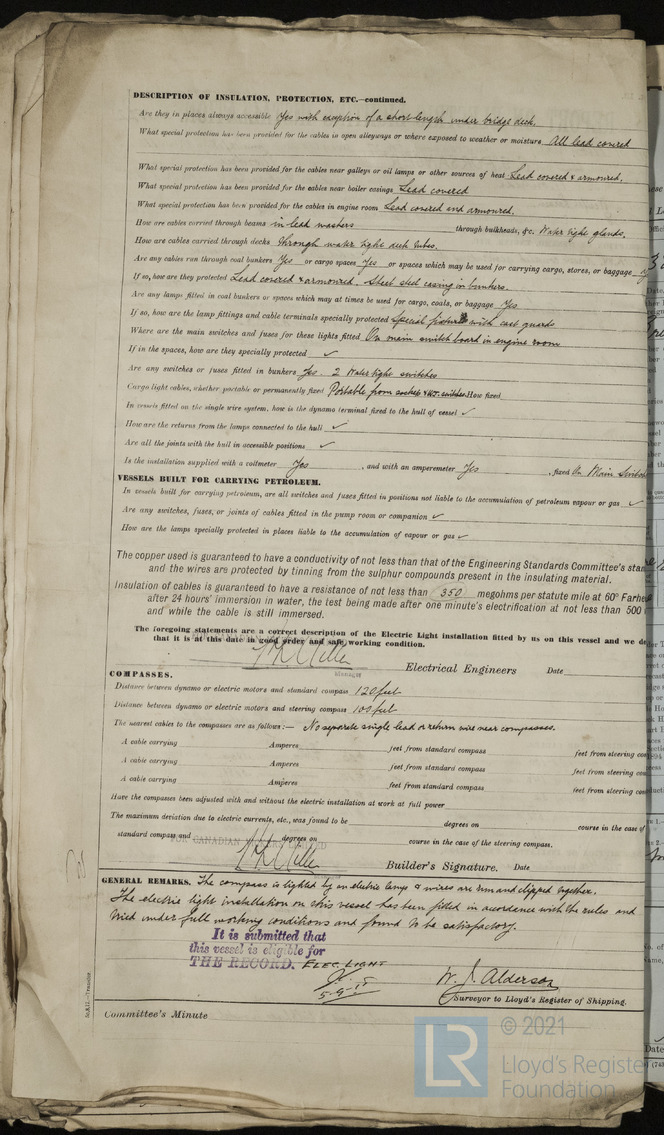 DESCRIPTION OF INSULATION, PROTECTION, ETC.—continued.
Are they in places always accessible Yes with exception of a short length under bridge deck.
What special protection has been provided for the cables in open alleyways or where exposed to weather or moisture All lead covered
What special protection has been provided for the cables near galleys or oil lamps or other sources of heat Lead covered & armoured.
What special protection has been provided for the cables near boiler casings Lead covered
What special protection has been provided for the cables in engine room Lead covered and armoured.
How are cables carried through beams in lead through bulkheads, &c. Water tight glands.
How are cables carried through decks Through water tight deck tubes.
Are any cables run through coal bunkers Yes or cargo spaces Yes or spaces which may be used for carrying cargo, stores, or baggage
If so, how are they protected Lead covered & armoured. Sheet steel casing in bunkers.
Are any lamps fitted in coal bunkers or spaces which may at times be used for cargo, coals, or baggage Yes
If so, how are the lamp fittings and cable terminals specially protected Special with cast guards
Where are the main switches and fuses for these lights fitted On main switch board in engine room
If in the spaces, how are they specially protected ✓
Are any switches or fuses fitted in bunkers Yes 2 Water tight switches
Cargo light cables, whether portable or permanently fixed Portable from How fixed
In vessels fitted on the single wire system, how is the dynamo terminal fixed to the hull of vessel ✓
How are the returns from the lamps connected to the hull ✓
Are all the joints with the hull in accessible positions ✓
Is the installation supplied with a voltmeter Yes , and with an amperemeter Yes , fixed On Main
VESSELS BUILT FOR CARRYING PETROLEUM.
In vessels built for carrying petroleum, are all switches and fuses fitted in positions not liable to the accumulation of petroleum vapour or gas ✓
Are any switches, fuses, or joints of cables fitted in the pump room or companion ✓
How are the lamps specially protected in places liable to the accumulation of vapour or gas ✓
The copper used is guaranteed to have a conductivity of not less than that of the Engineering Standards Committee's stan
and the wires are protected by tinning from the sulphur compounds present in the insulating material.
Insulation of cables is guaranteed to have a resistance of not less than 350 megohms per statute mile at 60° Farhe
after 24 hours' immersion in water, the test being made after one minute's electrification at not less than 500
and while the cable is still immersed.
The foregoing statements are a correct description of the Electric Light installation fitted by us on this vessel and we de
that it is at this date in good order and safe working condition.
Manager
Electrical Engineers Date
COMPASSES.
Distance between dynamo or electric motors and standard compass 120 feet
Distance between dynamo or electric motors and steering compass feet
The nearest cables to the compasses are as follows:— No separate single lead or return wire near compasses.
A cable carrying Amperes feet from standard compass feet from steering com
A cable carrying Amperes feet from standard compass feet from steering com
A cable carrying Amperes feet from standard compass feet from steering com
Have the compasses been adjusted with and without the electric installation at work at full power
The maximum deviation due to electric currents, etc., was found to be degrees on course in the case of
standard compass and degrees on course in the case of the steering compass.
FOR CANADIAN
Builder's Signature. Date
GENERAL REMARKS. The compass is lighted by an electric lamp & wires are run and clipped together.
The electric light installation on this vessel has been fitted in accordance with the rules and
tried under full working conditions and found to be satisfactory.
It is submitted that
this vessel is eligible for
THE RECORD. ELEC. LIGHT
5.9.15
W. J. Alderson
Surveyor to Lloyd's Register of Shipping.
Committee's Minute
LR
© 2021
Lloyd's Register
Foundation